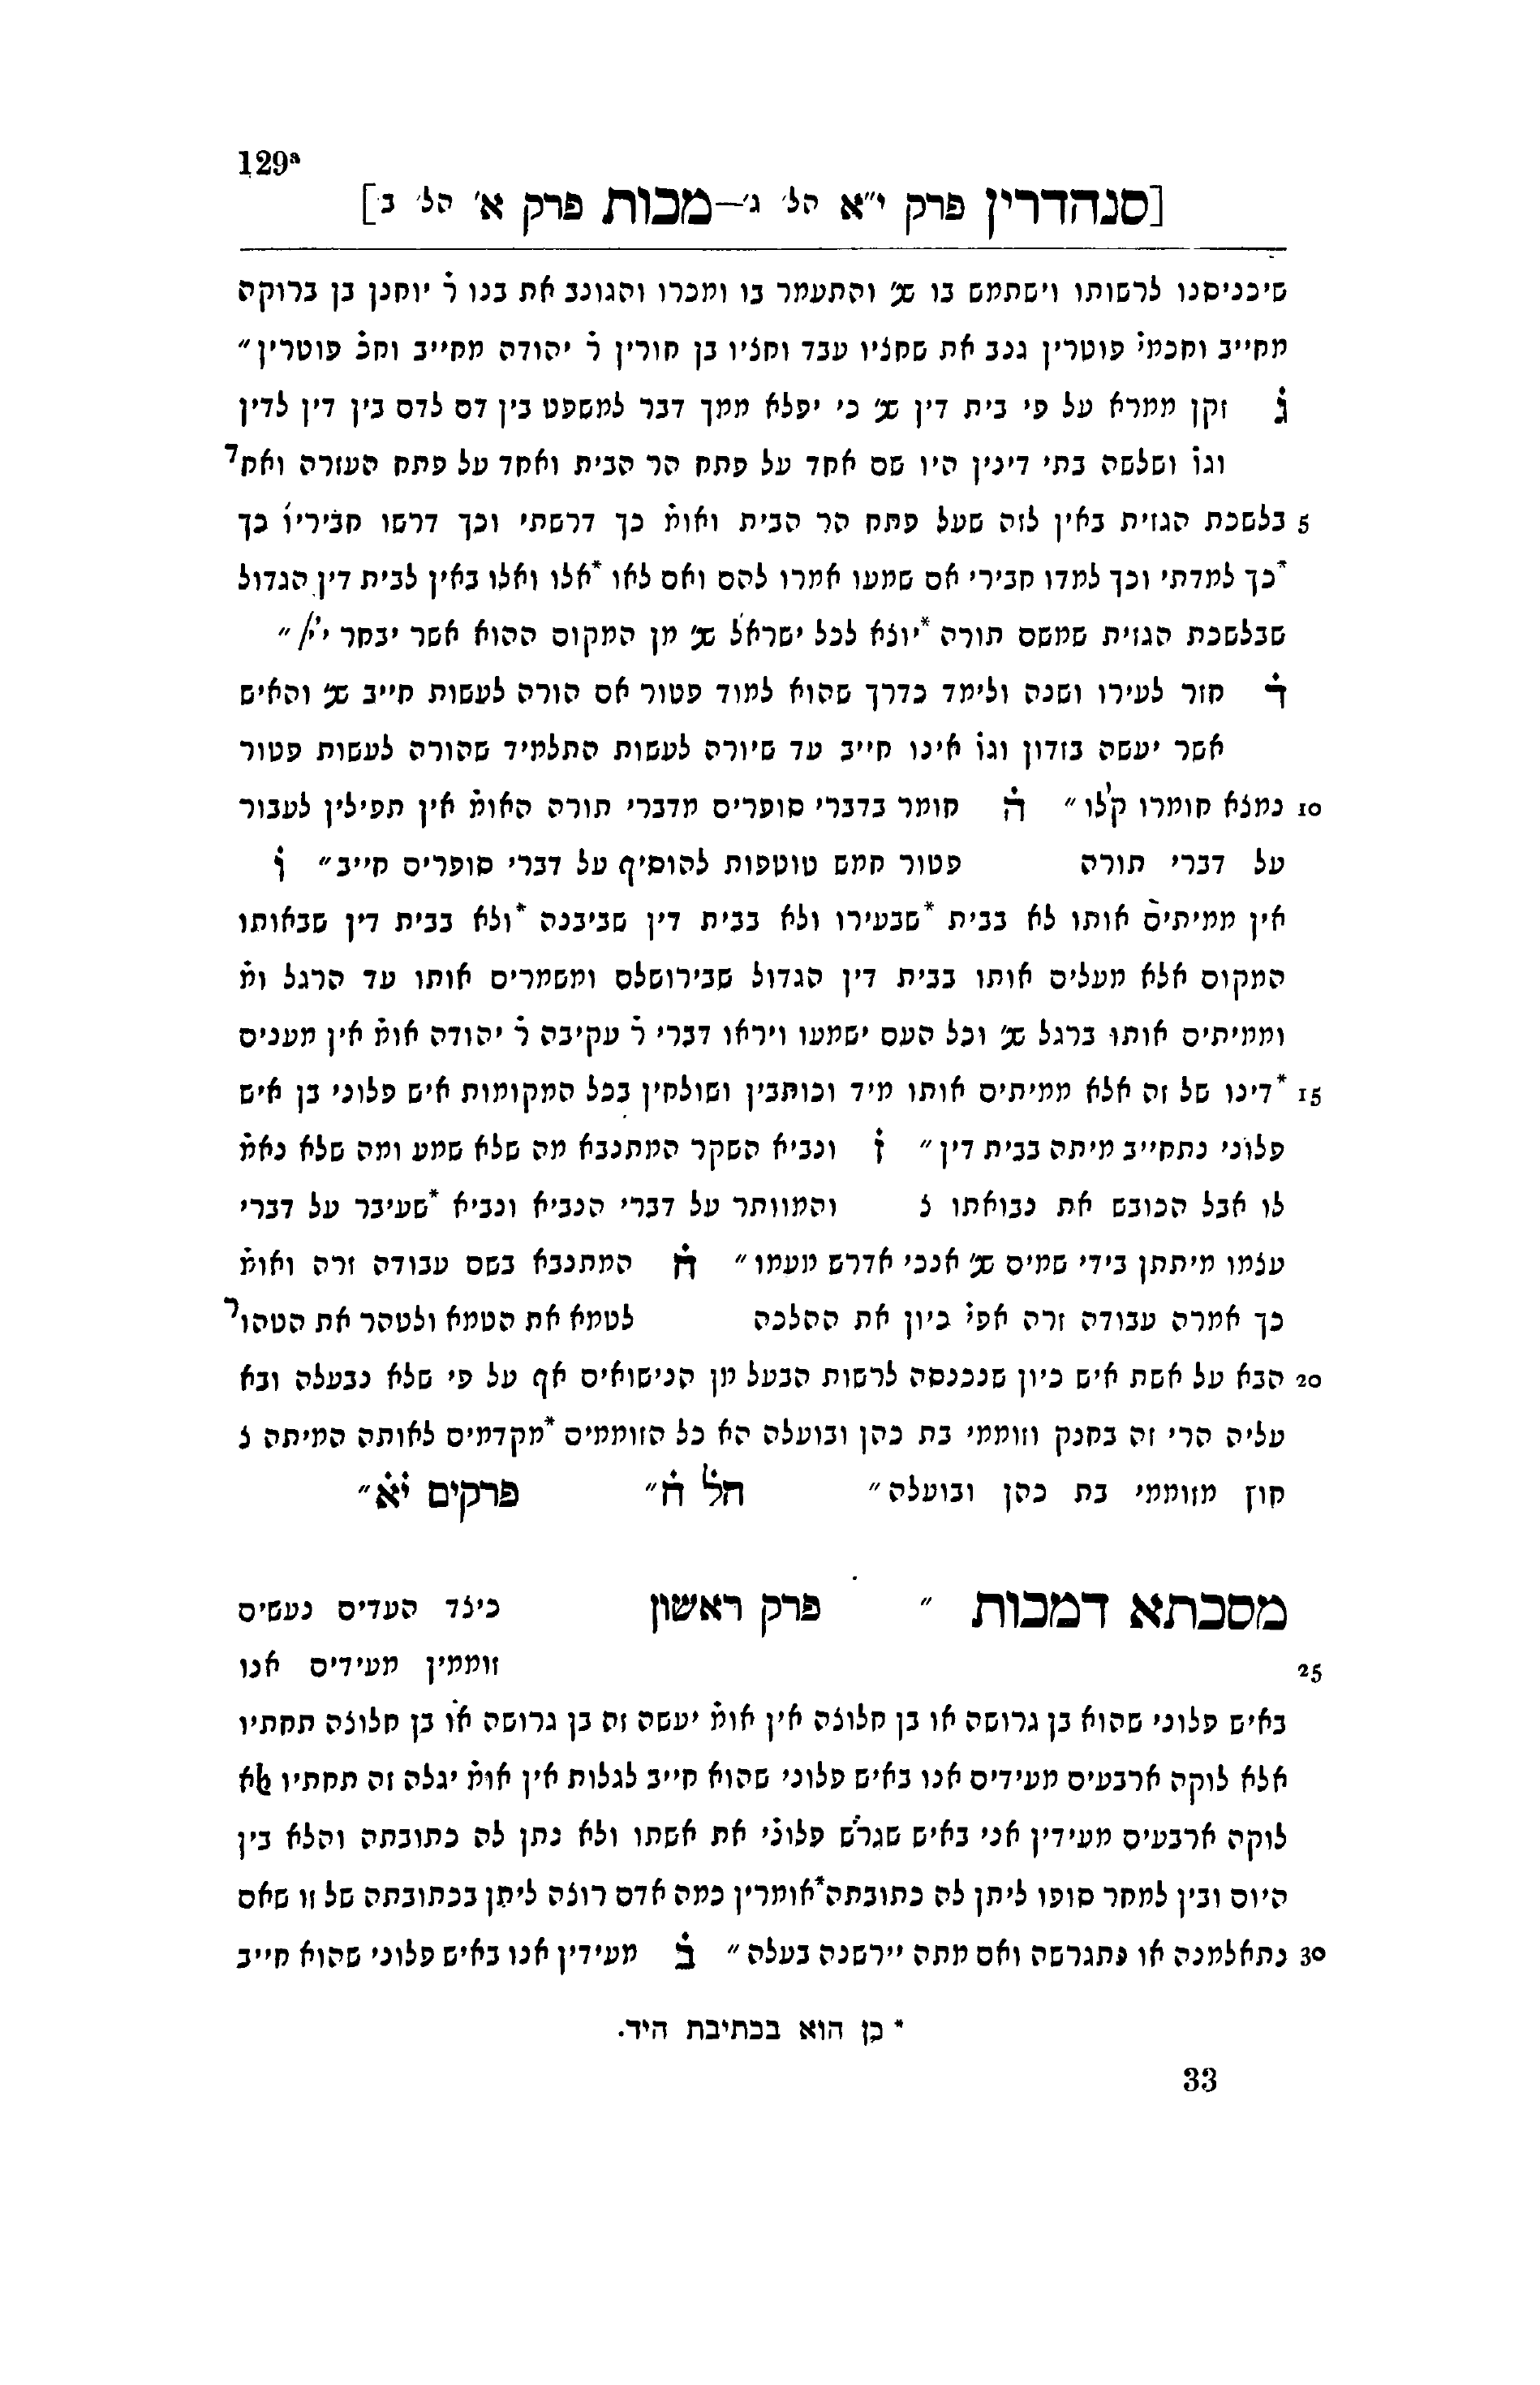 129ª
[סנהדרין פרק י״א הל׳ ג׳—מכות פרק א׳ הל׳ ב׳]
שיכניסנו לרשותו וישתמש בו שנ׳ והתעמר בו ומכרו והגונב את בנו ר̇ יוחנן בן ברוקה
מחייב וחכמי̇ פוטרין גנב את שחציו עבד וחציו בן חורין ר̇ יהודה מחייב וחכ̇ פוטרין״
ג̇ זקן ממרא על פי בית דין שנ׳ כי יפלא ממך דבר למשפט בין דם לדם בין דין לדין
וגו̇ ושלשה בתי דינין היו שם אחד על פתח הר הבית ואחד על פתח העזרה ואחד
5 בלשכת הגזית באין לזה שעל פתח הר הבית ואומ̇ כך דרשתי וכך דרשו חביריו̇ כך
*כך למדתי וכך למדו חבירי אם שמעו אמרו להם ואם לאו *אלו ואלו באין לבית דין הגדול
שבלשכת הגזית שמשם תורה *יוצא לכל ישראל שנ׳ מן המקום ההוא אשר יבחר ייי״
ד̇ חזר לעירו ושנה ולימד כדרך שהוא למוד פטור אם הורה לעשות חייב שנ׳ והאיש
אשר יעשה בזדון וגו̇ אינו חייב עד שיורה לעשות התלמיד שהורה לעשות פטור
10 נמצא חומרו קלו״ ה̇ חומר בדברי סופרים מדברי תורה האומ̇ אין תפילין לעבור
על דברי תורה פטור חמש טוטפות להוסיף על דברי סופרים חייב״ ו̇
אין ממיתים אותו לא בבית *שבעירו ולא בבית דין שביבנה *ולא בבית דין שבאותו
המקום אלא מעלים אותו בבית דין הגדול שבירושלם ומשמרים אותו עד הרגל ומ̇
וממיתים אותו ברגל שנ׳ וכל העם ישמעו ויראו דברי ר̇ עקיבה ר̇ יהודה אומ̇ אין מענים
15 *דינו של זה אלא ממיתים אותו מיד וכותבין ושולחין בכל המקומות איש פלוני בן איש
פלוני נתחייב מיתה בבית דין״ ז̇ ונביא השקר המתנבא מה שלא שמע ומה שלא נאמ̇
לו אבל הכובש את נבואתו צ והמוותר על דברי הנביא ונביא *שעיבר על דברי
עצמו מיתתן בידי שמים שנ׳ אנכי אדרש מעמו״ ח̇ המתנבא בשם עבודה זרה ואומ̇
כך אמרה עבודה זרה אפי̇ ביון את ההלכה לטמא את הטמא ולטהר את הטהור
20 הבא על אשת איש כיון שנכנסה לרשות הבעל מן הנישואים אף על פי שלא נבעלה ובא
עליה הרי זה בחנק וזוממי בת כהן ובועלה הא כל הזוממים *מקדמים לאותה המיתה צ
חוץ מזוממי בת כהן ובועלה״ הל̇ ח̇״ פרקים י̇א̇״
מסכתא דמכות״ פרק ראשון כיצד העדים נעשים
25 זוממין מעידים אנו
באיש פלוני שהוא בן גרושה או בן חלוצה אין אומ̇ יעשה זה בן גרושה או בן חלוצה תחתיו
אלא לוקה ארבעים מעידים אנו באיש פלוני שהוא חייב לגלות אין אומ̇ יגלה זה תחתיו אלא
לוקה ארבעים מעידין אני באיש שגרש פלוני את אשתו ולא נתן לה כתובתה והלא בין
היום ובין למחר סופו ליתן לה כתובתה *אומרין כמה אדם רוצה ליתן בכתובתה של זו שאם
30 נתאלמנה או נתגרשה ואם מתה יירשנה בעלה״ ב̇ מעידין אנו באיש פלוני שהוא חייב
* כן הוא בכתיבת היד.
33